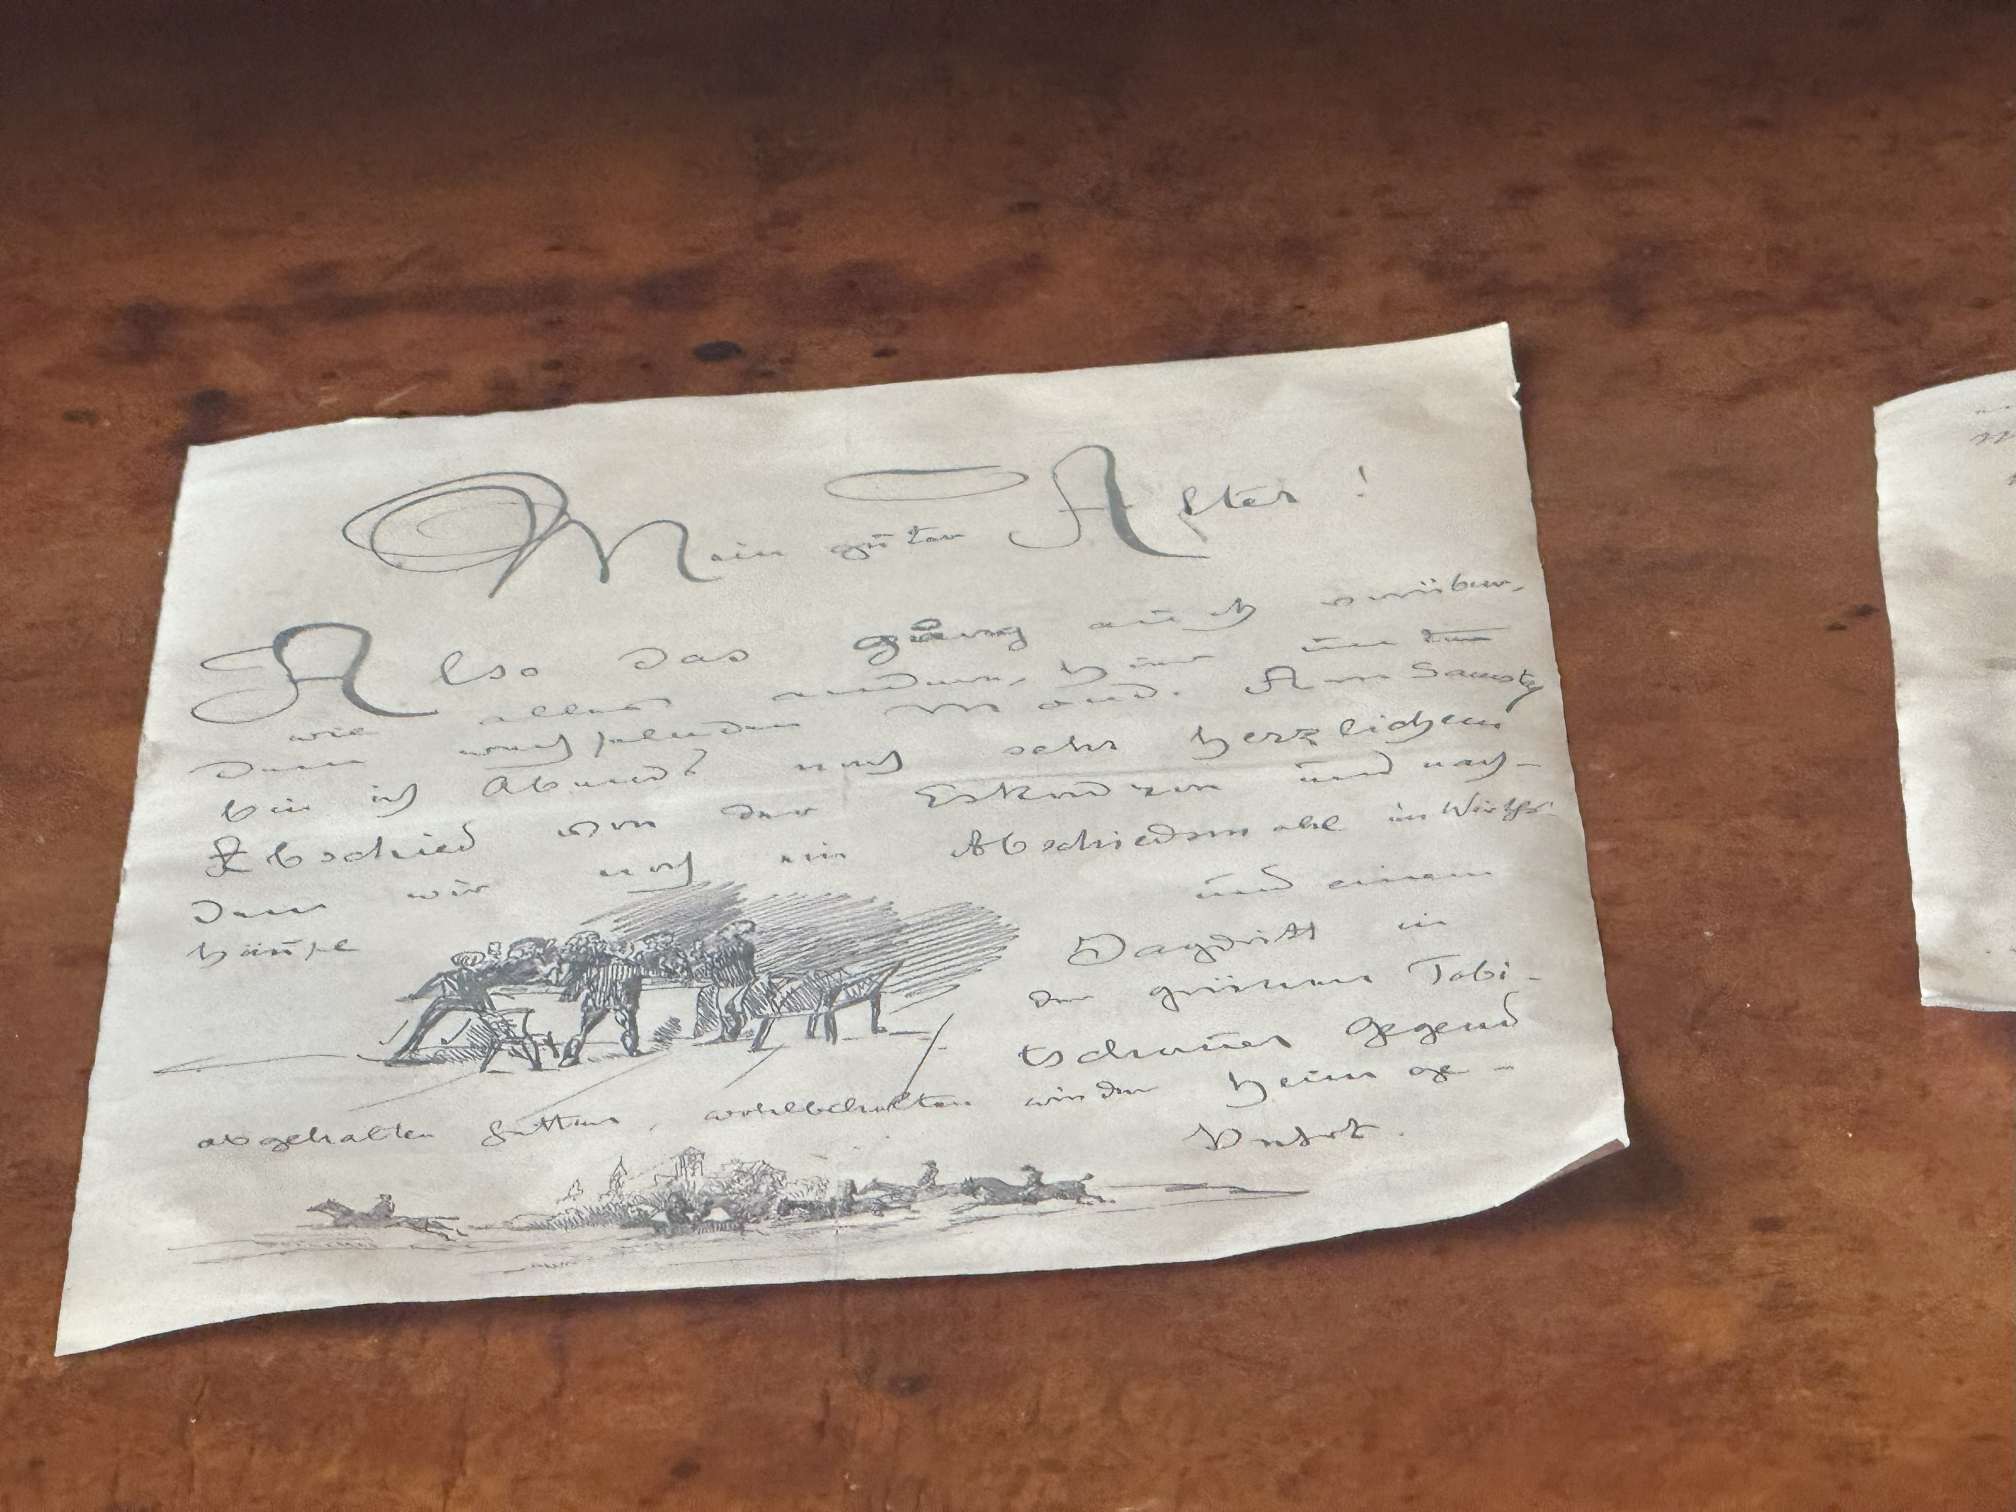 Mein guter Alter!
Also das ging auch vorüber,
wie alles andere, hier unter
dem wechselnden Mond. Am Samstag
bin ich Abends nach sehr herzlichem
Abschied von der Eskadron und nach-
dem wir noch ein Abschiedsmahl im Wirths-
hause und einem
Jagdritt in
der grünen Tobi-
tschauer Gegend
abgehalten hatten, wohlbehalten wieder heim ge-